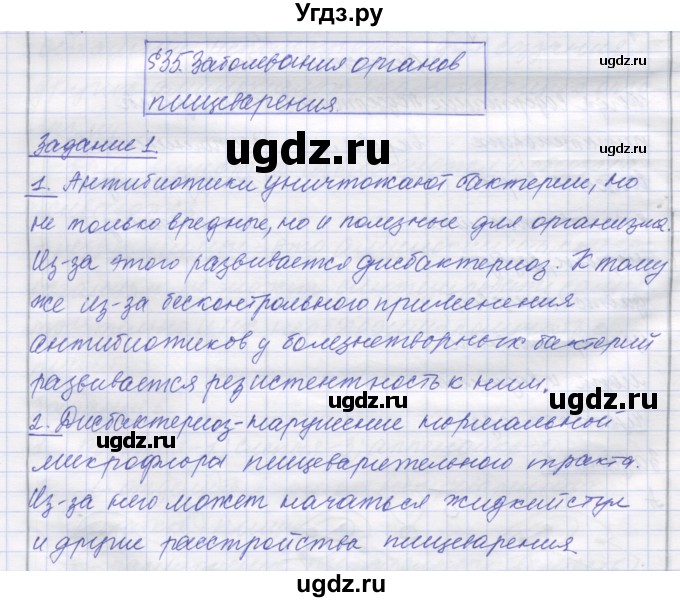 Угдз.ру
©ugdz.ru
§35. Заболевания органов
пищеварения.
Задание 1.
ugdz.ru
ugdz.ru
1. Антибиотики уничтожают бактерии, но
не только вредные, но и полезные для организма.
Из-за этого развивается дисбактериоз. К тому
ugdz.ru
же из-за бесконтрольного применения
антибиотиков у болезнетворных бактерий
развивается резистентность к ним.
ugdz.ru
2. Дисбактериоз - нарушение нормальной
ugdz.ru
микрофлоры пищеварительного тракта.
Из-за него может начаться жидкий стул
и другие расстройства пищеварения
ugdz.ru
ugdz.ru
ugdz.ru